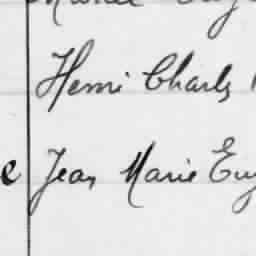 Henri Charles
e Jean Marie Eug